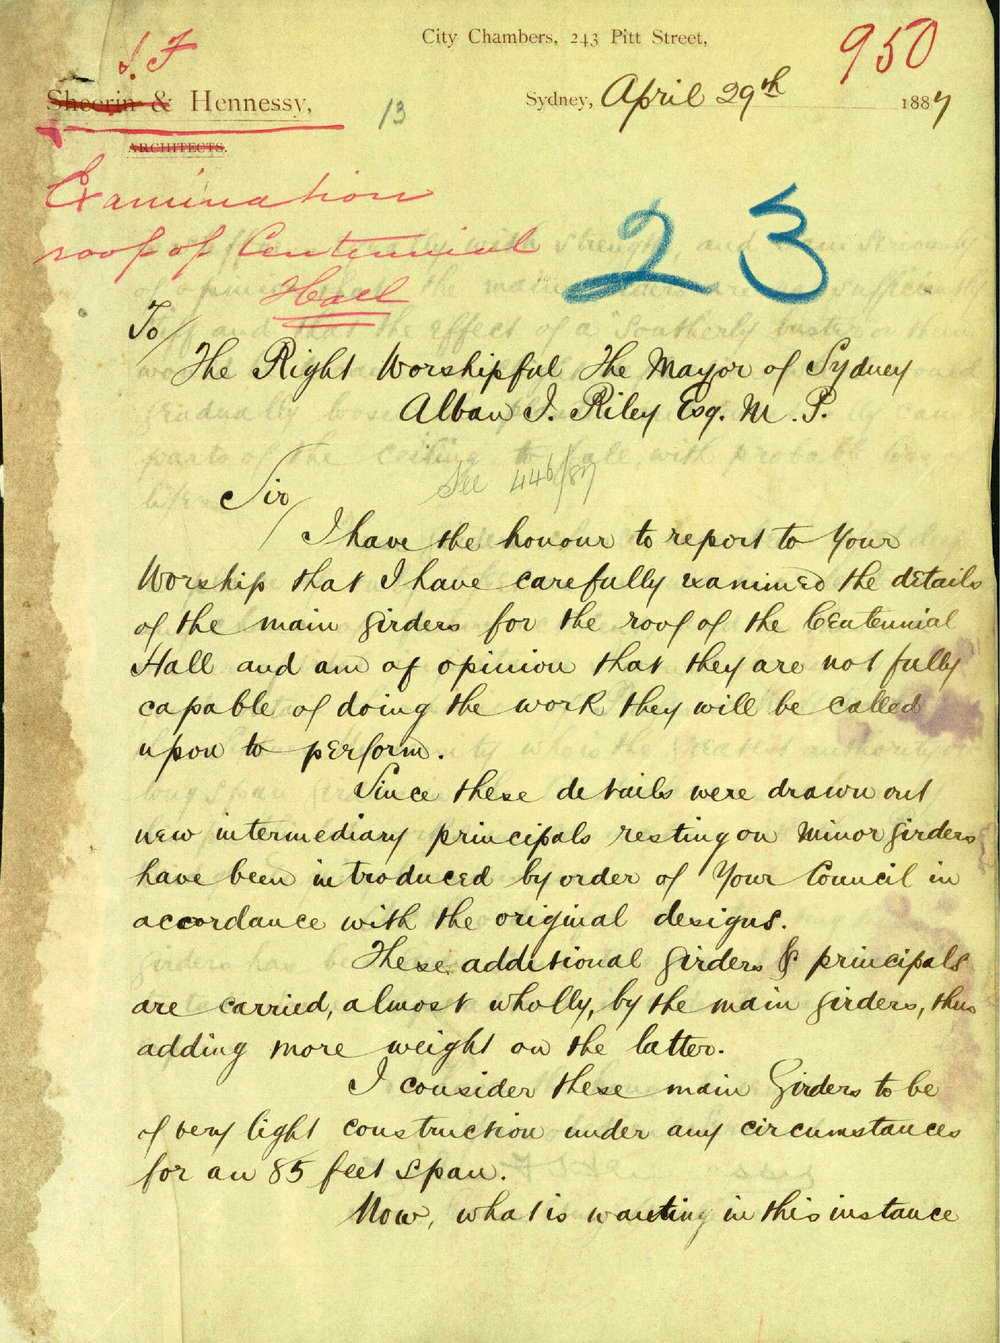 City Chambers, 243 Pitt Street,
950
J. F
Sheerin & Hennessy,
13
Sydney, April 29th 1887
ARCHITECTS.
Examination
roof of Centennial
Hall
23
To
The Right Worshipful The Mayor of Sydney
Alban J. Riley Esq. M. P.
See 446/87
Sir
I have the honour to report to Your
Worship that I have carefully examined the details
of the main girders for the roof of the Centennial
Hall and am of opinion that they are not fully
capable of doing the work they will be called
upon to perform.
Since these details were drawn out
new intermediary principals resting on minor girders
have been introduced by order of Your Council in
accordance with the original designs.
These additional girders & principals
are carried, almost wholly, by the main girders, thus
adding more weight on the latter.
I consider these main Girders to be
of very light construction under any circumstances
for an 85 feet span.
Now, what is wanting in this instance